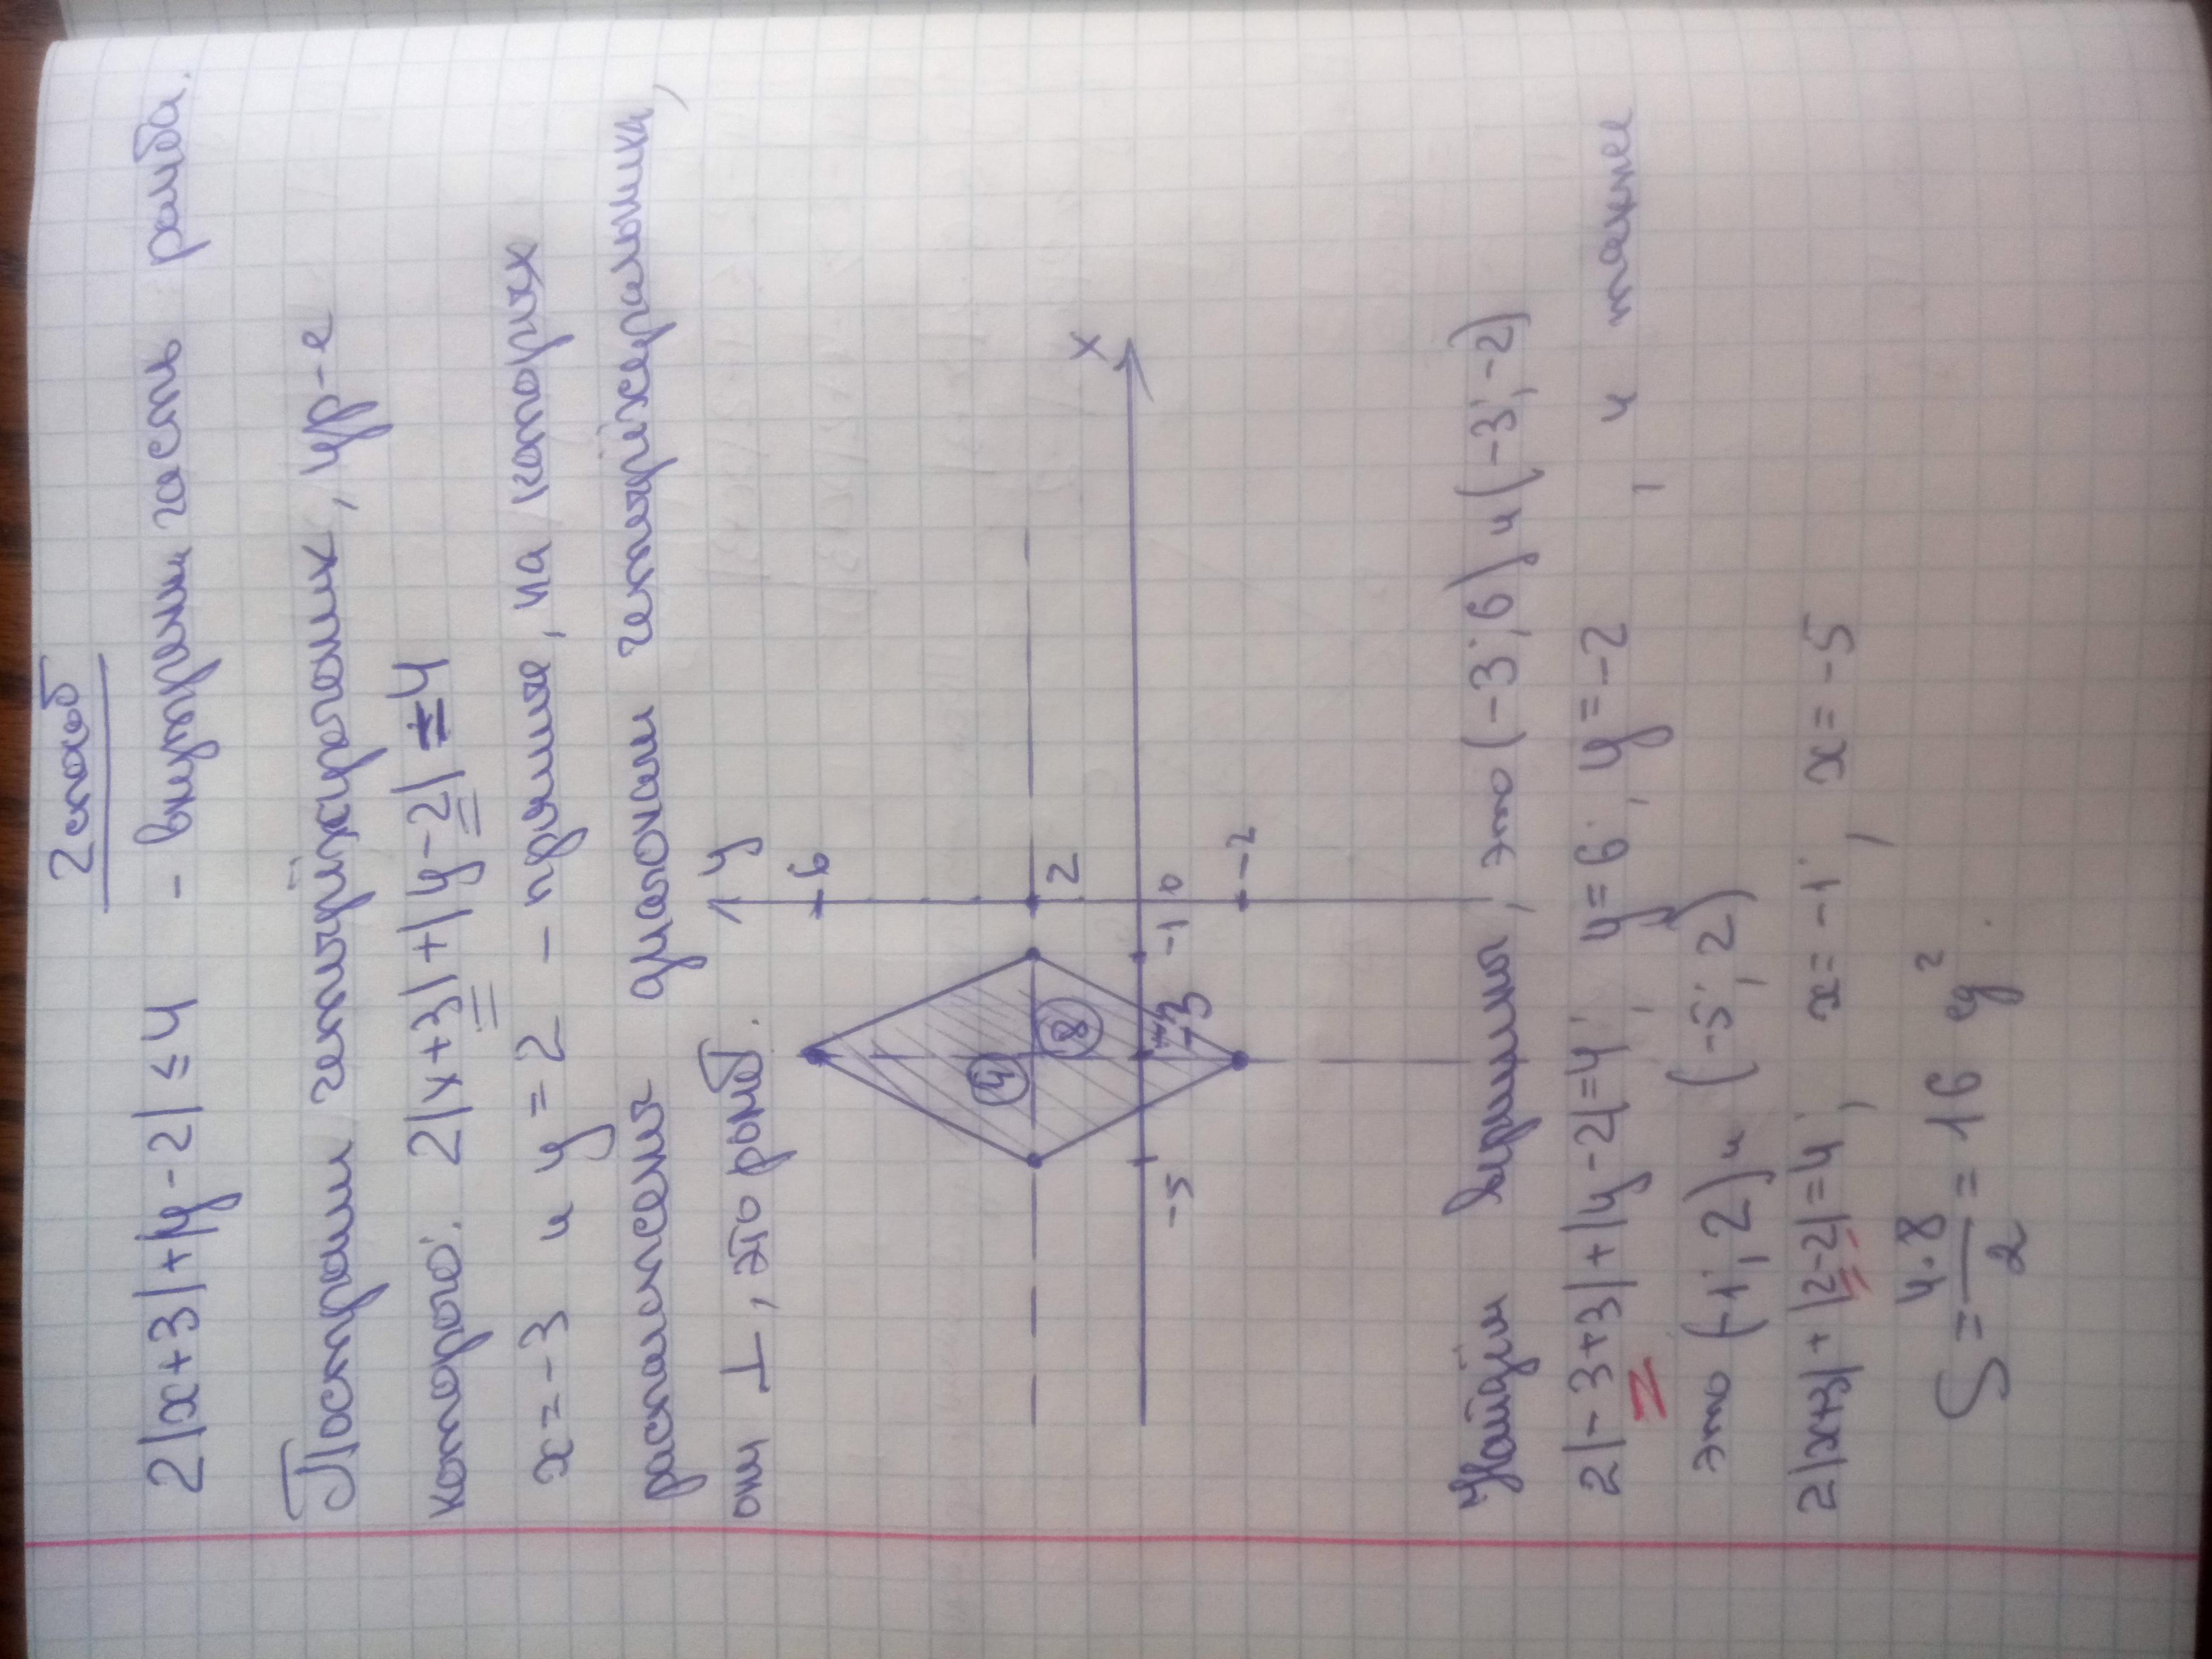 2 способ
2|x+3|+|y-2| ≤ 4 - внутрення часть ромба.
Построим четырёхугольник, ур-е
которого: 2|x+3|+|y-2|=4
x=-3 и y=2 - прямые, на которых
расположены диагонали четырёхугольника,
они ⊥, это ромб.
y
6
x
2
4
8
-5
-3
-1
0
-2
Найдём вершины, это (-3; 6) и (-3; -2)
2|-3+3|+|y-2|=4; y=6; y=-2, и также
это (-1; 2) и (-5; 2)
2|x+3|+|2-2|=4; x=-1; x=-5
S = 4·8/2 = 16 ед²